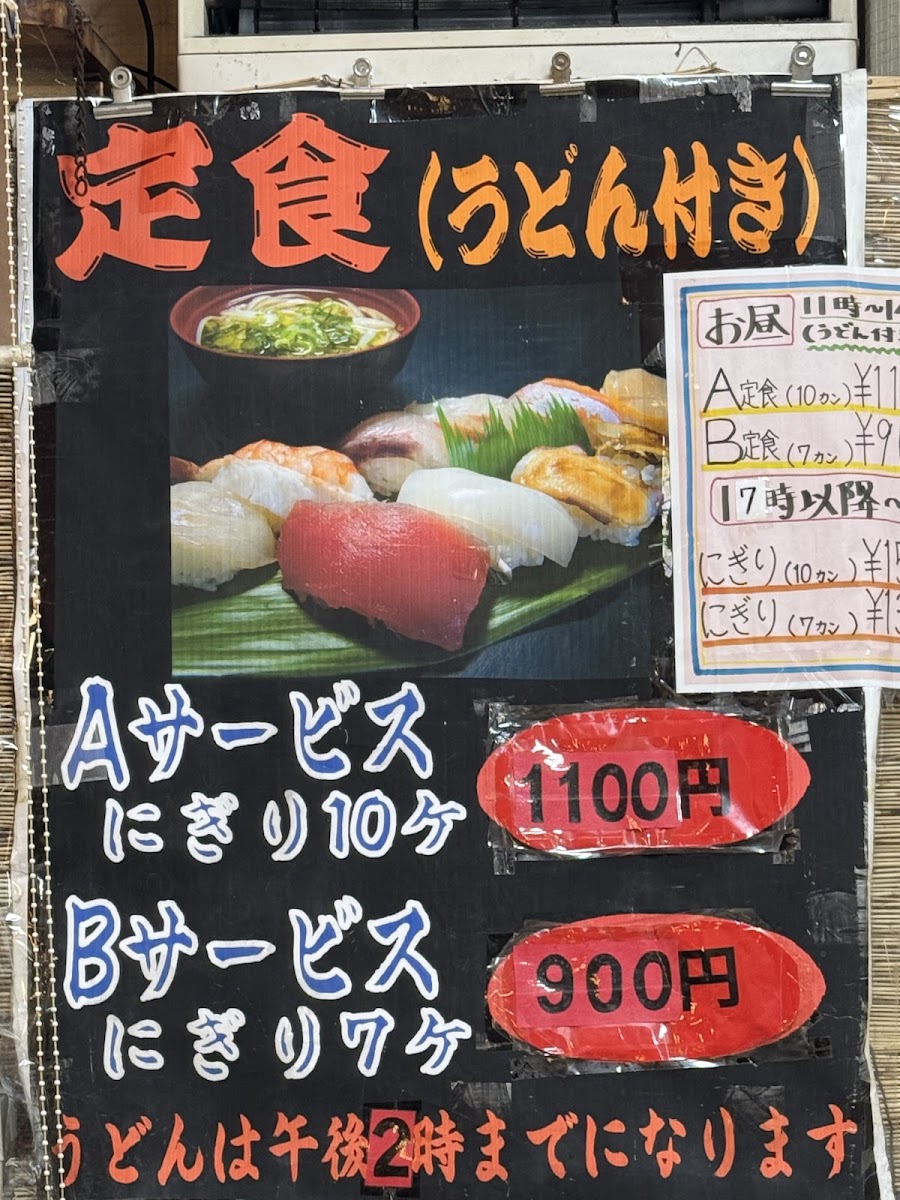 定食(うどん付き)
お昼 11時〜1
(うどん付
A定食(10カン)¥11
B定食(7カン)¥9
17時以降〜
にぎり(10カン)¥15
にぎり(7カン)¥13
Aサービス
にぎり10ケ
1100円
Bサービス
にぎり7ケ
900円
うどんは午後2時までになります